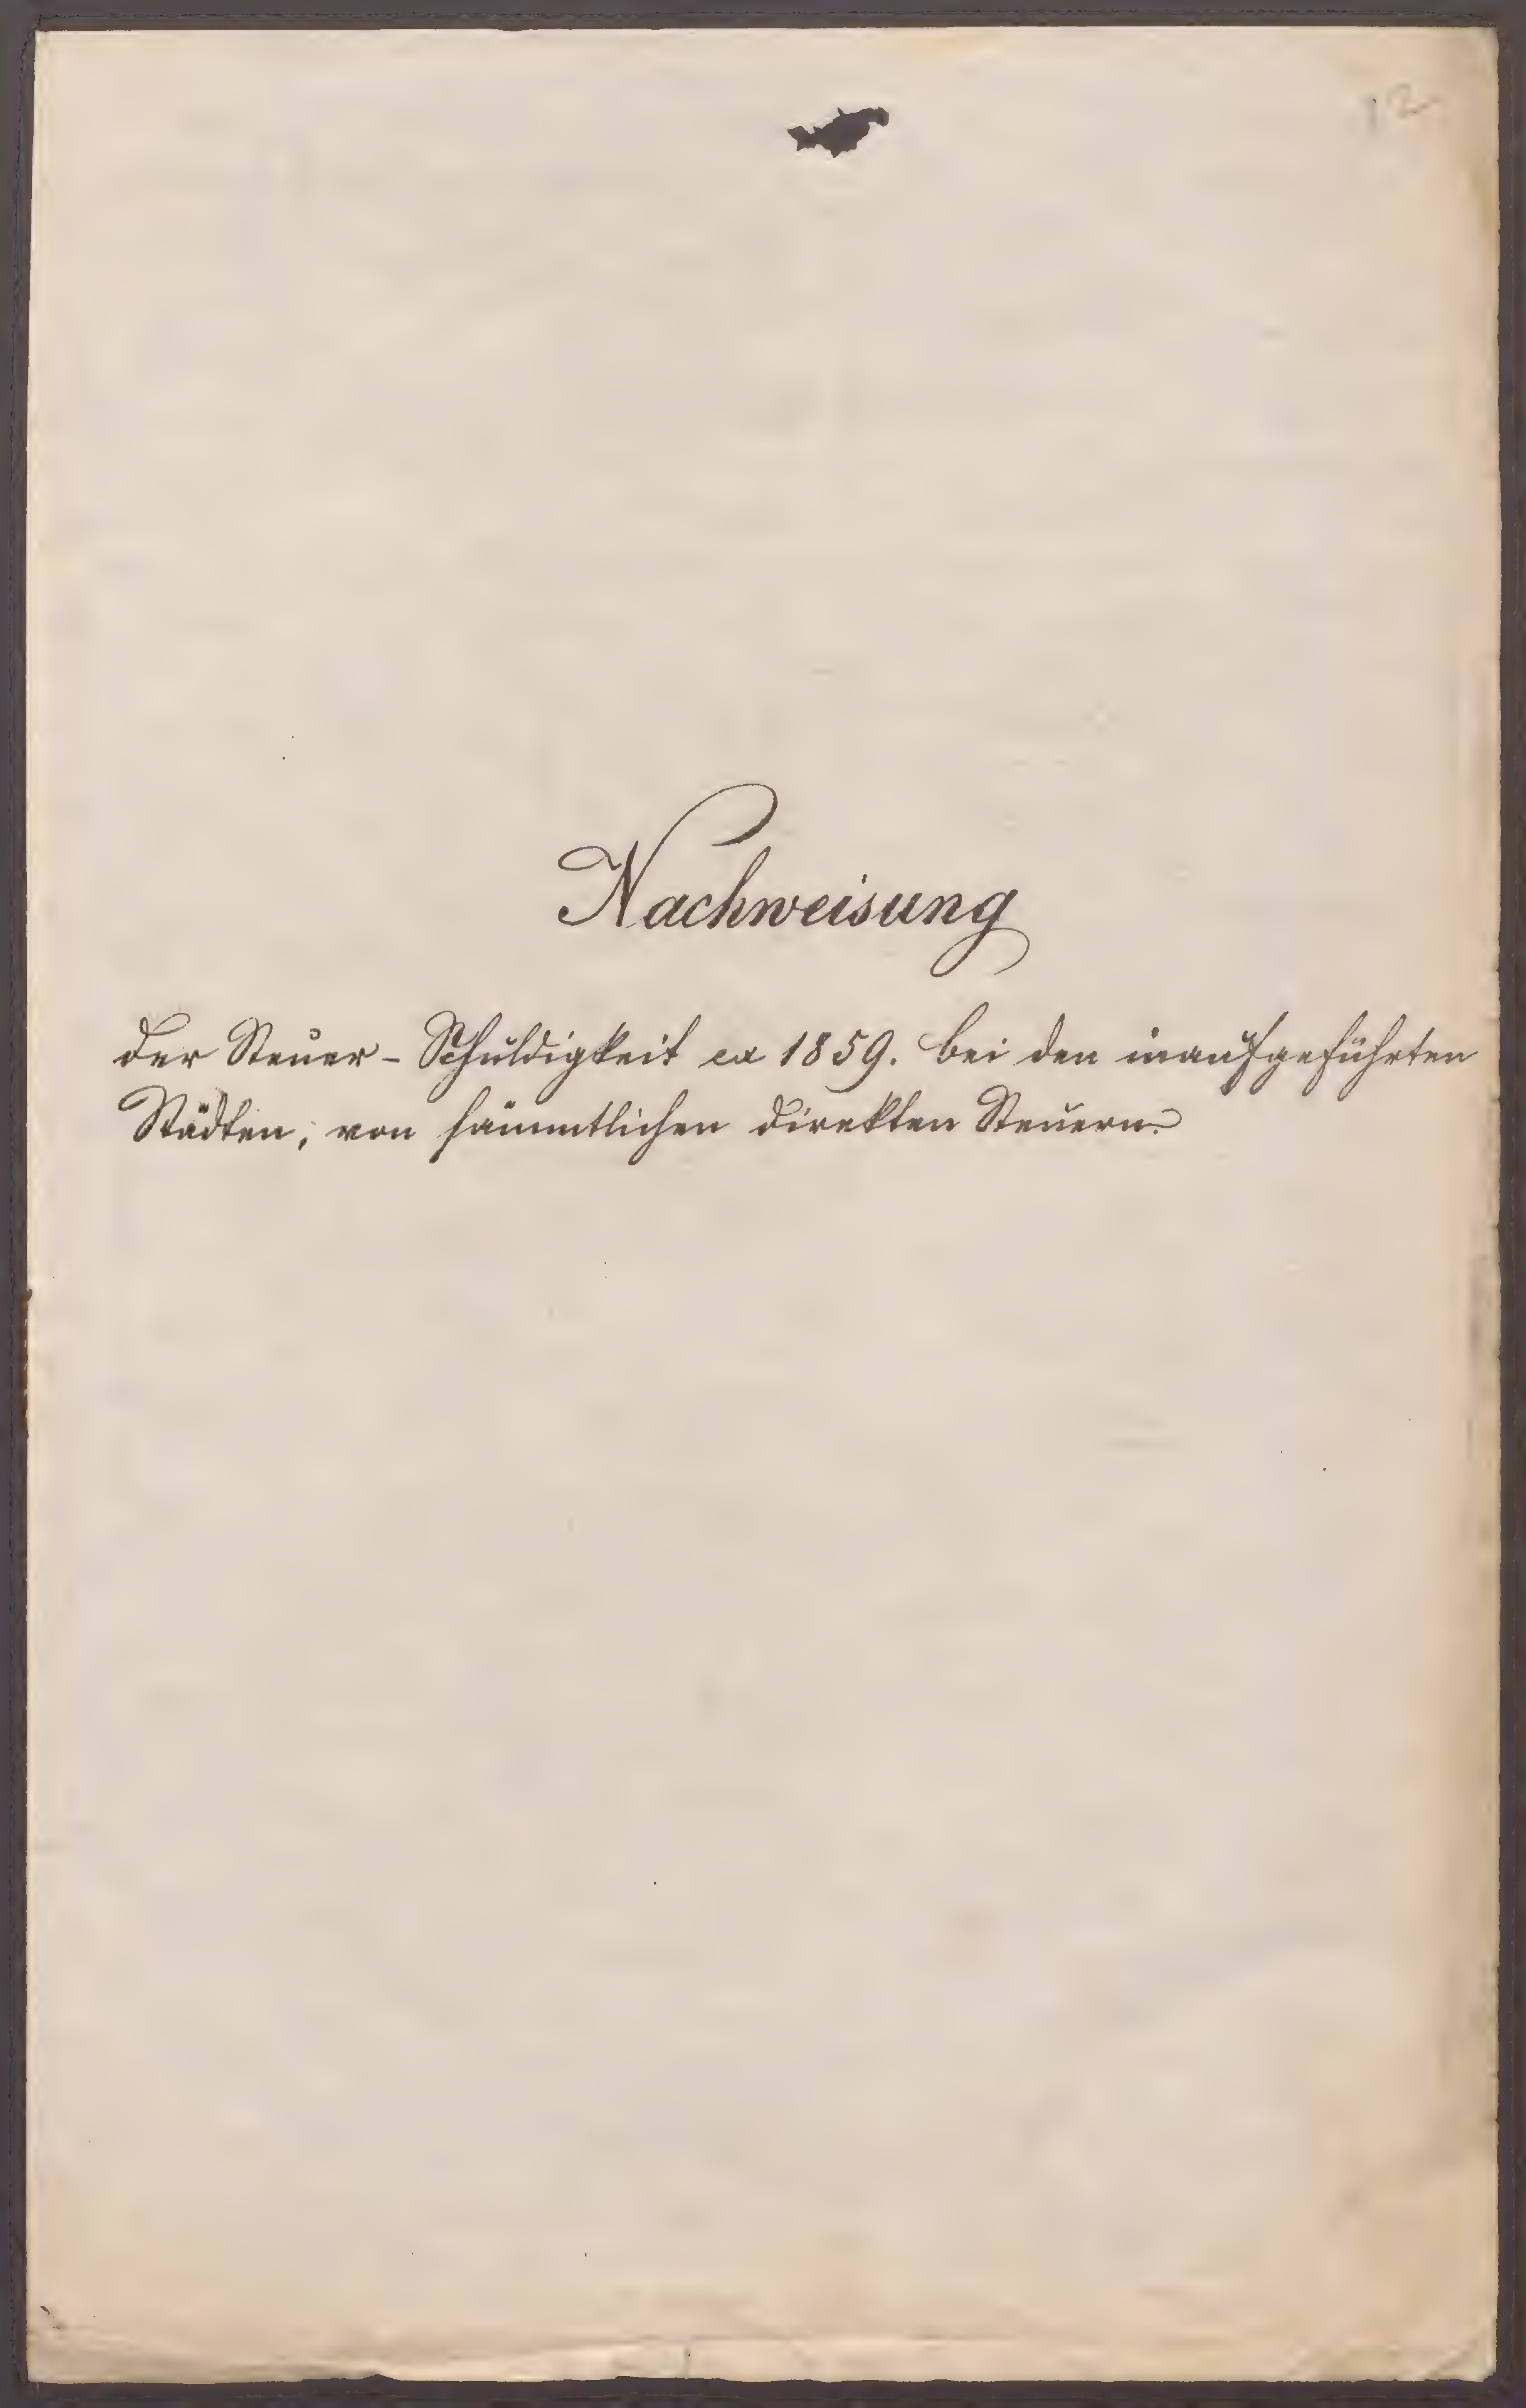 12
Nachweisung
der Steuer-Schuldigkeit ex 1859. bei den inaufgeführten
Städten, von sämmtlichen direkten Steuern.